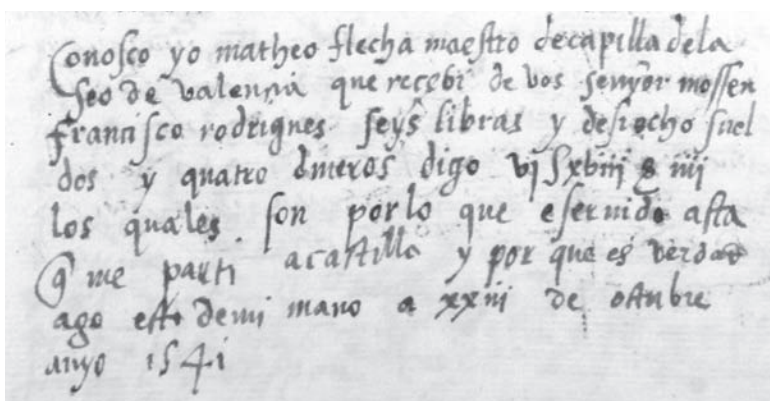 Conosco yo matheo flecha maestro de capilla de la
seo de valençia que recebi de vos senyor mossen
francisco rodrignes seys libras y desiocho suel
dos y quatro dineros digo vj S xbiij S iiij
los quales son por lo que e seruido asta
q me parti a castilla y por que es verdad
ago esto de mi mano a xxiij de octubre
anyo 1541